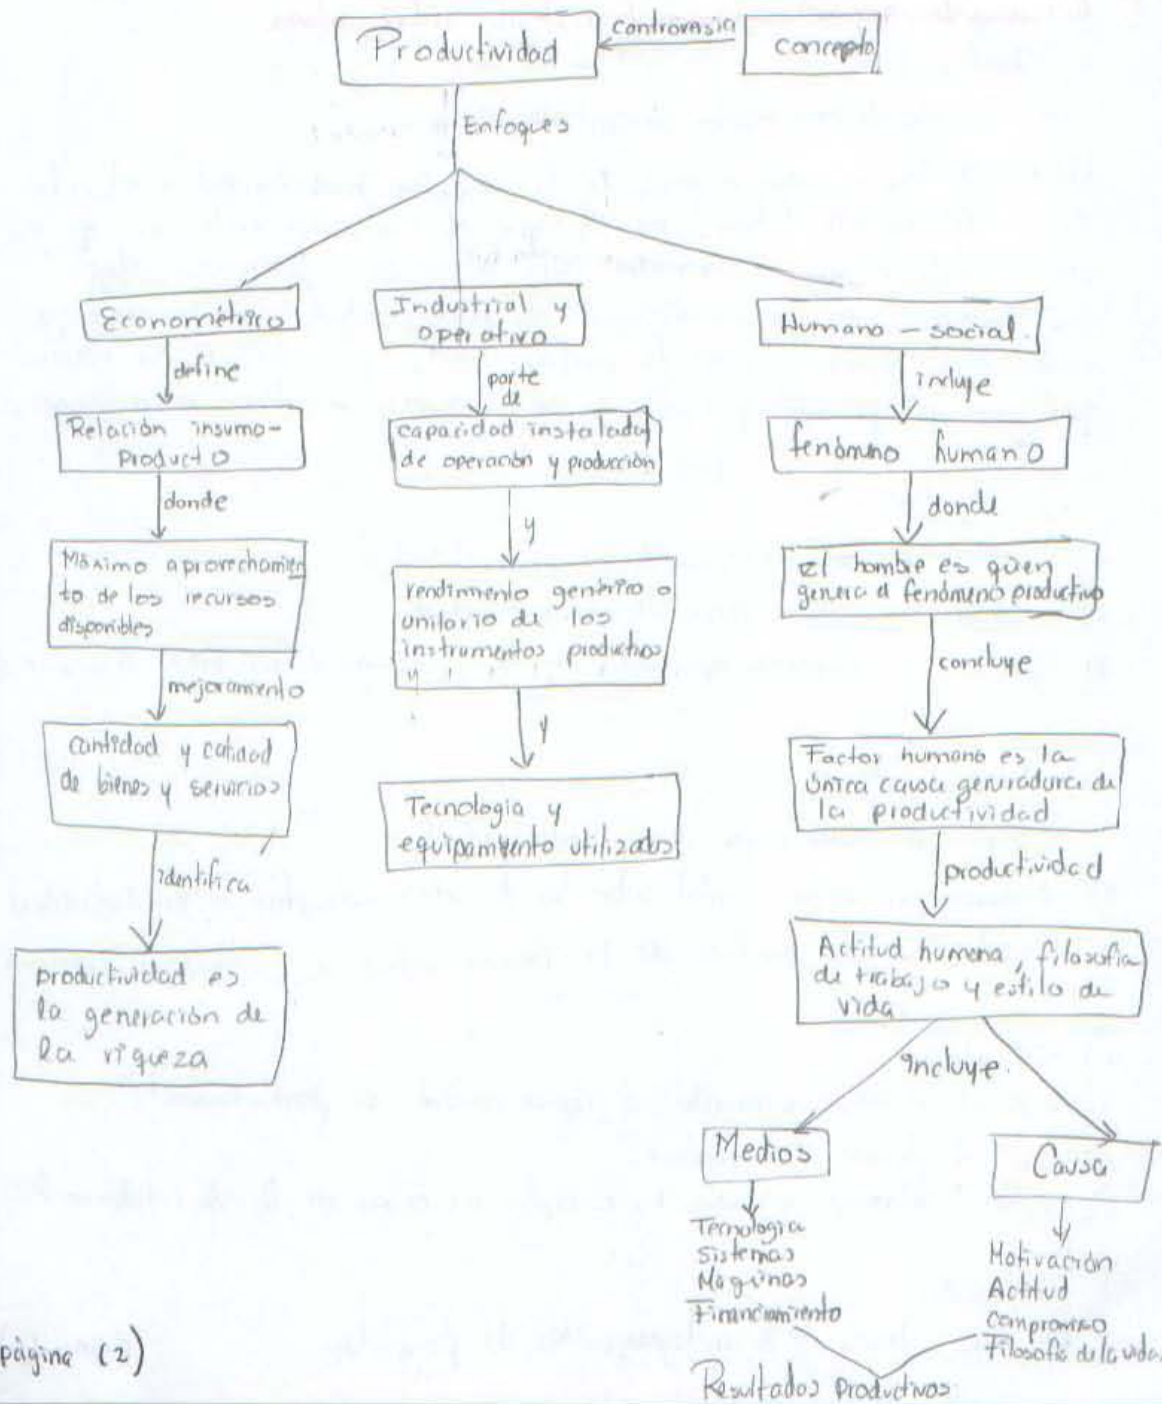 Productividad
controversia
concepto
Enfoques
Econométrico
define
Relación insumo-
Producto
donde
Máximo aprovechamien
to de los recursos
disponibles
mejoramiento
cantidad y calidad
de bienes y servicios
identifica
productividad es
la generación de
la riqueza
Industrial y
operativo
parte
de
capacidad instalada
de operación y producción
y
rendimiento genérico o
unitario de los
instrumentos productivos
y
y
Tecnología y
equipamiento utilizados
Humano - social.
incluye
fenómeno humano
donde
El hombre es quien
genera el fenómeno productivo
concluye
Factor humano es la
única causa generadora de
la productividad
productividad
Actitud humana, filosofía
de trabajo y estilo de
vida
incluye.
Medios
Tecnología
Sistemas
Maquinas
Financiamiento
Causa
Motivación
Actitud
compromiso
Filosofía de la vida.
Resultados Productivos.
página (2)